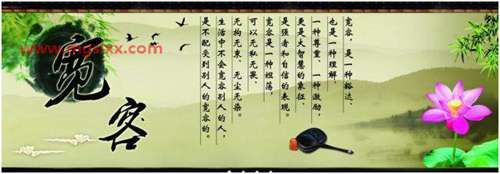 宽容，是一种豁达、
也是一种理解、
一种尊重、一种激励，
更是大智慧的象征、
是强者和自信的表现。
宽容是一种坦荡，
可以无私无畏、
无拘无束、无尘无染。
生活中不会宽容别人的人，
是不配受到别人的宽容的。
宽容